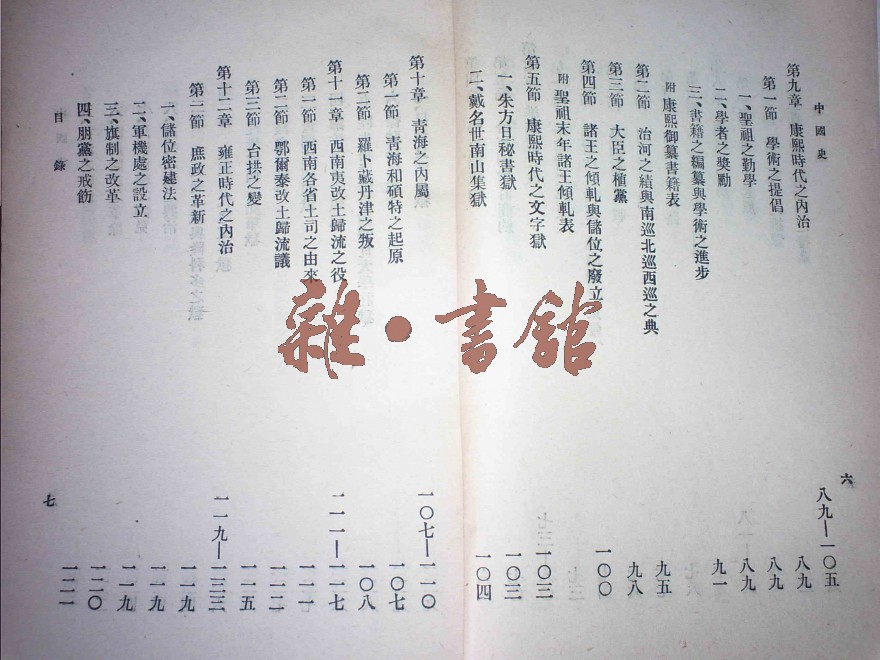 中國史
六
第九章 康熙時代之內治 八九—一〇五
第一節 學術之提倡 八九
一、聖祖之勤學 八九
二、學者之獎勵 八九
三、書籍之編纂與學術之進步 九一
附 康熙御纂書籍表
第二節 治河之績與南巡北巡西巡之典 九五
第三節 大臣之植黨 九八
第四節 諸王之傾軋與儲位之廢立 一〇〇
附 聖祖末年諸王傾軋表
第五節 康熙時代之文字獄 一〇三
一、朱方旦秘書獄 一〇三
二、戴名世南山集獄 一〇四
第十章 青海之內屬 一〇七—一一〇
第一節 青海和碩特之起原 一〇七
第二節 羅卜藏丹津之叛 一〇八
第十一章 西南夷改土歸流之役 一一一—一一七
第一節 西南各省土司之由來 一一一
第二節 鄂爾泰改土歸流議 一一二
第三節 台拱之變 一一五
第十二章 雍正時代之內治 一一九—一三三
第一節 庶政之革新 一一九
一、儲位密建法 一一九
二、軍機處之設立 一一九
三、旗制之改革 一二〇
四、朋黨之戒飭 一二一
目錄
七
雜·書館